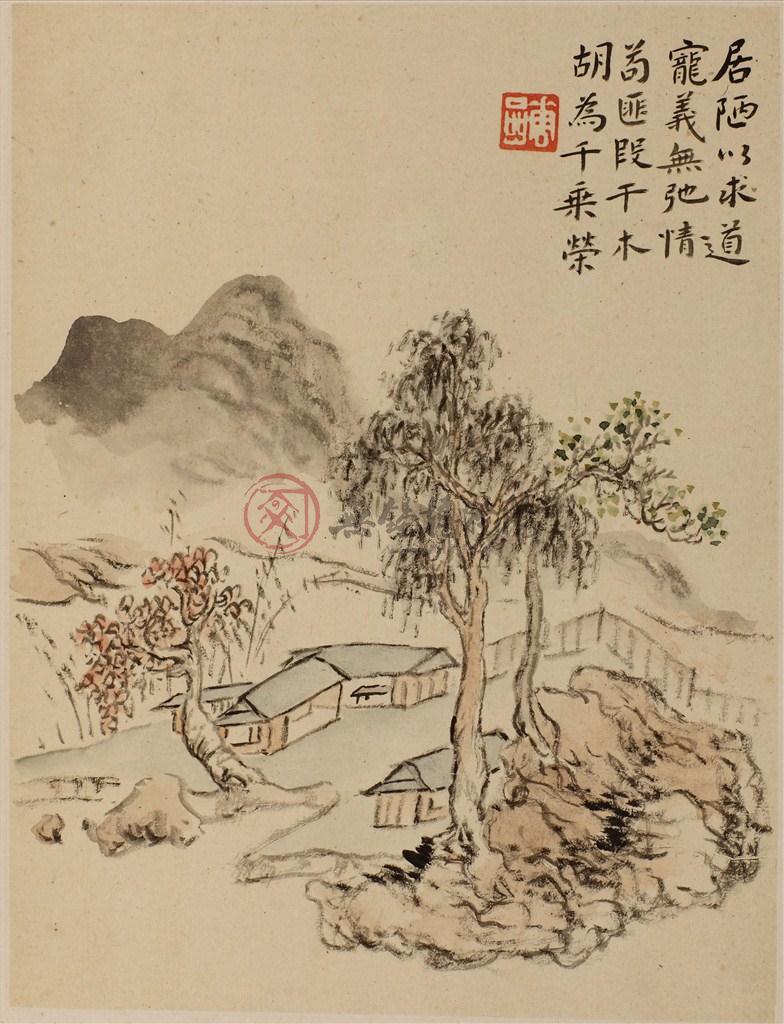 居陋以求道
寵義無弛情
苟匪段干木
胡為千乘榮